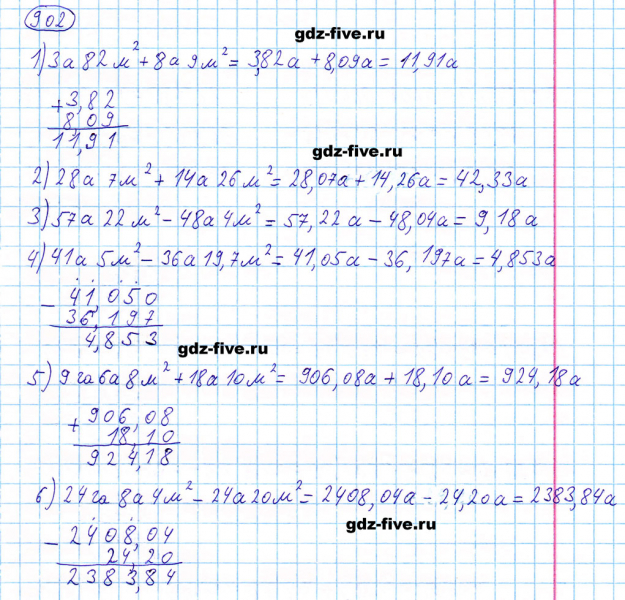 902
gdz-five.ru
1) 3а 82 м² + 8а 9 м² = 3,82а + 8,09а = 11,91а
+ 3,82
8,09
11,91
gdz-five.ru
2) 28а 7м² + 14а 26 м² = 28,07а + 14,26а = 42,33а
3) 57а 22 м² - 48а 4м² = 57,22а - 48,04а = 9,18а
4) 41а 5м² - 36а 19,7м² = 41,05а - 36,197а = 4,853а
- 41,050
36,197
4,853
gdz-five.ru
5) 9 га 6а 8м² + 18а 10м² = 906,08а + 18,10а = 924,18а
+ 906,08
18,10
924,18
6) 24 га 8а 4м² - 24а 20м² = 2408,04а - 24,20а = 2383,84а
gdz-five.ru
- 2408,04
24,20
2383,84